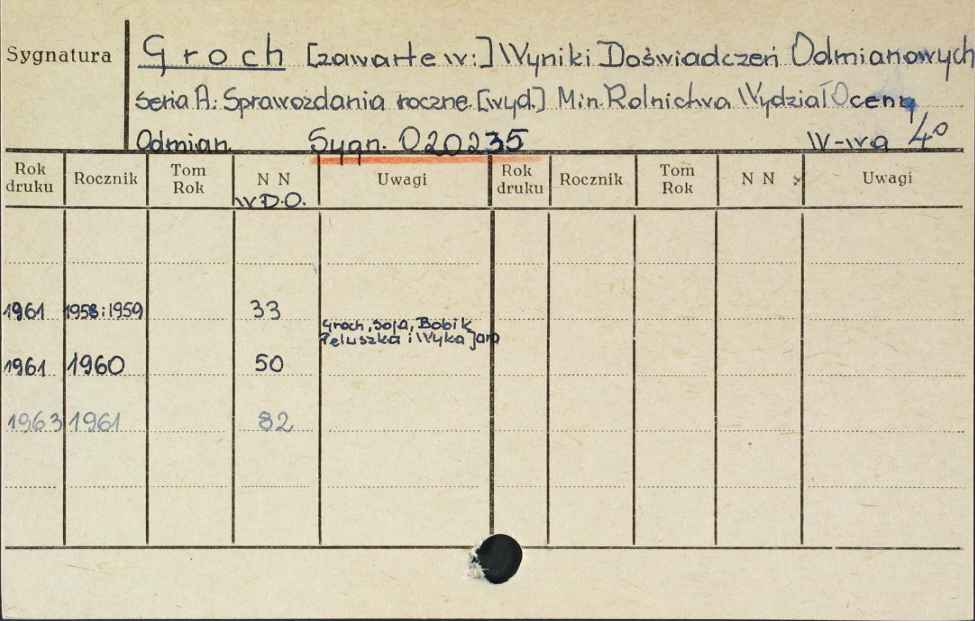 Sygnatura
Groch [zawarte w:] Wyniki Doświadczeń Odmianowych
seria A: Sprawozdania roczne. [wyd.] Min. Rolnictwa Wydział Oceny
Odmian. Sygn. 020235 W-wa 4°
Rok druku Rocznik Tom Rok N N Uwagi Rok druku Rocznik Tom Rok N N Uwagi
W.D.O.
1961 1958:1959 33
Groch, Soja, Bobik
Peluszka i Wyka Jara
1961 1960 50
1963 1961 82